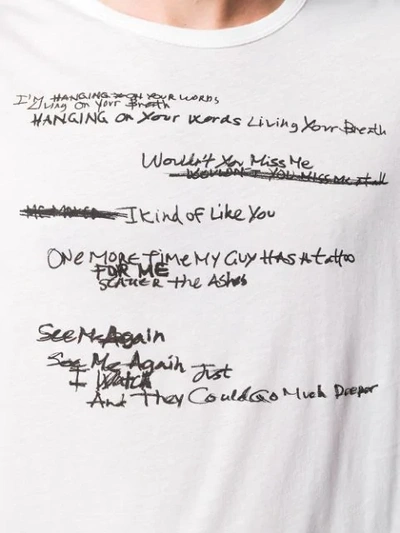 I'M HANGING ON YOUR WORDS
Living On Your Breath
HANGING On Your Words Living Your Breath
Wouldn't You Miss Me
WOULDN'T YOU MISS ME at all
I Kind of Like You
ONE MORE TIME MY Guy HAS A tattoo
FOR ME
SCATTER the Ashes
See Me Again
See Me Again Just
I Watch
And They Could Go Much Deeper